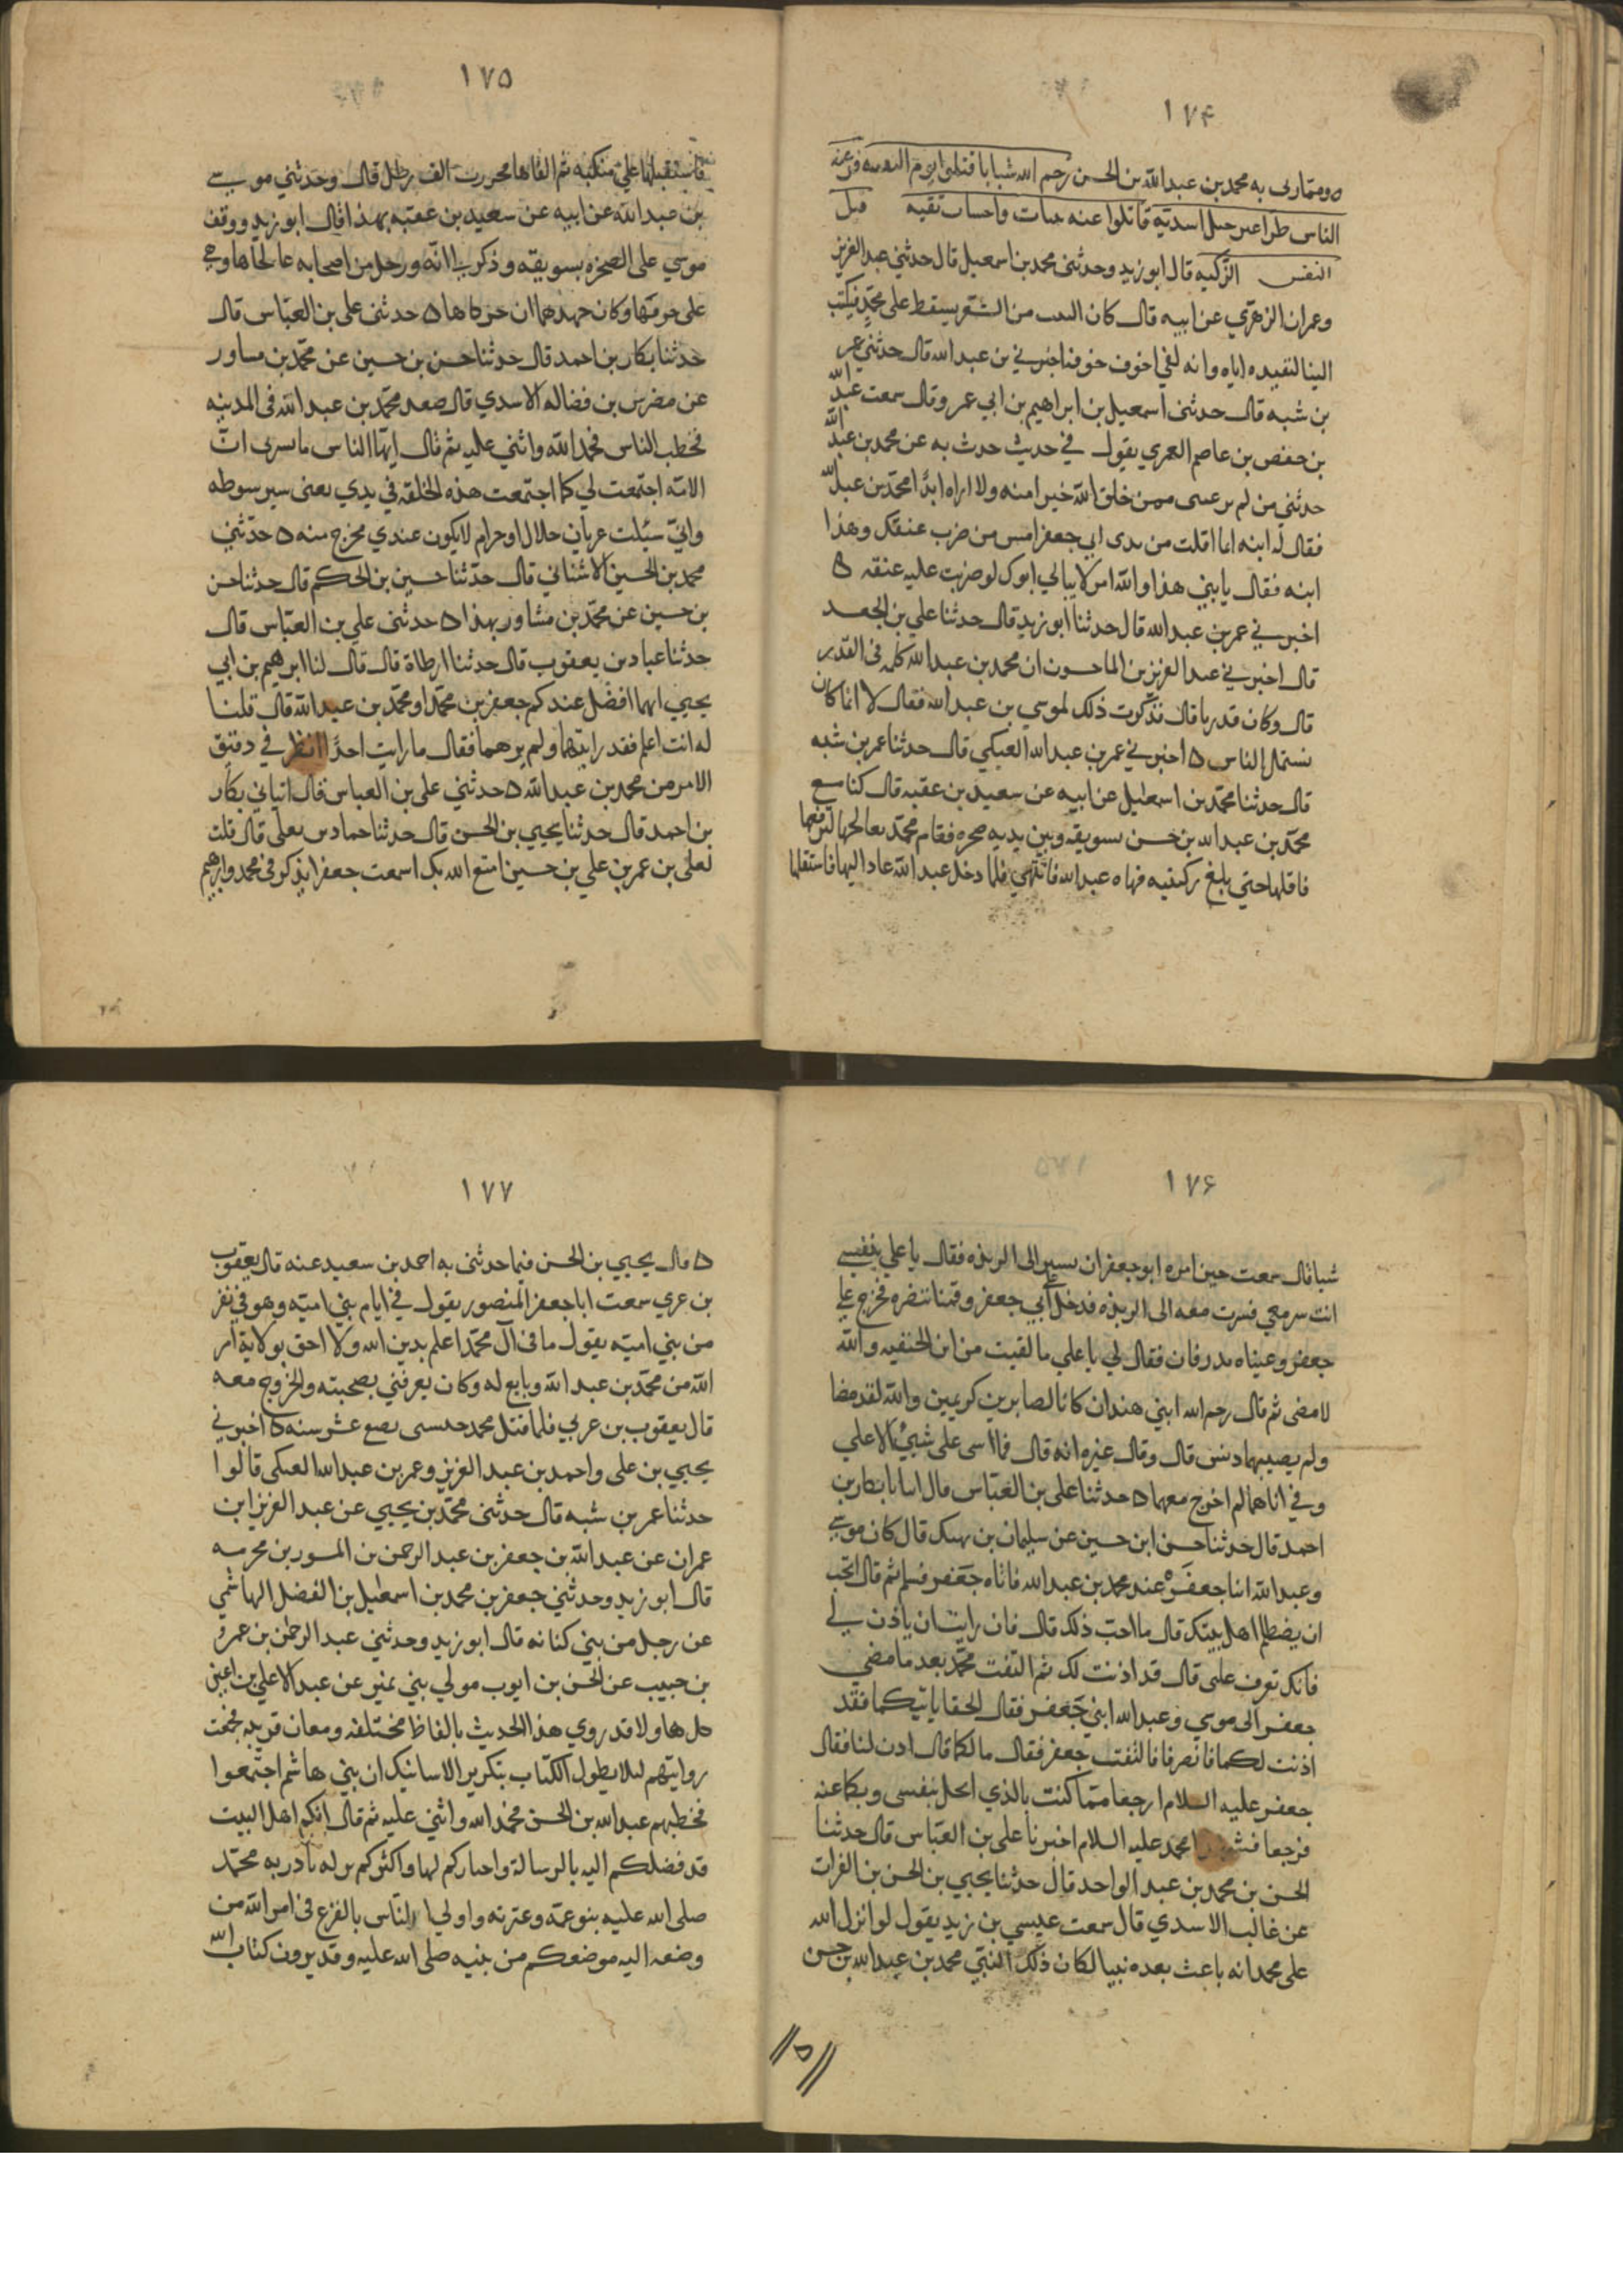 ١٧۴
ومما رثى به محمد بن عبد الله بن الحسن رحم الله شبابا قتلوا
الناس طرا قاتلوا عنه واحساب نقيه قبل
النفس الزكيه قال ابو زيد وحدثني محمد بن اسمعيل قال حدثني عبد العزيز
وعمران الزهري عن ابيه قال كان البيت من الشعر يسقط على محمد فيكتب
الينا لنفيده اياه وانه لفي اخوف خوف اخبرني بن عبد الله قال حدثني عمر
بن شبه قال حدثنى اسمعيل بن ابراهيم بن ابي عمرو قال سمعت عبد الله
بن حفص بن عاصم العمري يقول في حديث حدث به عن محمد بن عبد الله
حدثني من لم تر عيني ممن خلق الله خيرا منه ولا اراه ابدًا محمد بن عبد الله
فقال له ابنه اما افلت من يدى ابي جعفر امس من ضرب عنقك وهذا
ابنه فقال يا بني هذا والله امر لا يبالي ابوك لو ضربت عليه عنقه ۵
اخبرني عمر بن عبد الله قال حدثنا ابو زيد قال حدثنا علي بن الجعد
قال اخبرني عبد العزيز بن الماجشون ان محمد بن عبد الله كلمه فى القدر
قال وكان قدريا قال فذكرت ذلك لموسي بن عبد الله فقال لا انما كان
يستميل الناس ۵ اخبرني عمر بن عبد الله العتكي قال حدثنا عمر بن شبه
قال حدثنا محمد بن اسمعيل عن ابيه عن سعيد بن عقبه قال كنا مع
محمد بن عبد الله بن حسن بسويقه وبين يديه صخره فقام محمد يعالجها ليرفعها
فاقلها حتي بلغ ركبتيه فنهاه عبد الله فانتهي فلما دخل عبد الله عاد اليها فاستقلها
١٧۵
فاستقبلها علي منكبيه ثم القاها فحزرت الف رطل قال وحدثني موسي
بن عبد الله عن ابيه عن سعيد بن عقبه بهذا قال ابو زيد ووقف
موسي على الصخرة بسويقه وذكر لي انه ورجل من اصحابه عالجاها وهي
على حرفها وكان جهدهما ان حركاها ۵ حدثنى على بن العباس قال
حدثنا بكار بن احمد قال حدثنا حسن بن حسين عن محمد بن مساور
عن مضرس بن فضاله الاسدي قال صعد محمد بن عبد الله فى المدينه
فخطب الناس فحمد الله واثني عليه ثم قال ايها الناس ما يسرني ان
الامه اجتمعت لي كما اجتمعت هذه الحلقه في يدي يعنى سير سوطه
واني سئلت عن باب حلال او حرام لا يكون عندي مخرج منه ۵ حدثني
محمد بن الحسين الاشناني قال حدثنا حسين بن الحكم قال حدثنا حسن
بن حسين عن محمد بن مشاور بهذا ۵ حدثنى علي بن العباس قال
حدثنا عباد بن يعقوب قال حدثنا ارطاة قال قال لنا ابرهيم بن ابي
يحيي ايهما افضل عندكم جعفر بن محمد او محمد بن عبد الله قال قلنا
له انت اعلم فقد رايتهما ولم نرهما فقال ما رايت احدًا انظر في دقيق
الامر من محمد بن عبد الله ۵ حدثني على بن العباس قال انباني بكار
بن احمد قال حدثنا يحيي بن الحسن قال حدثنا حماد بن يعلى قال قلت
لعلى بن عمر بن علي بن حسين امتع الله بك اسمعت جعفرا يذكر في محمد وابرهيم
١٧۶
شيا قال سمعت حين امره ابو جعفر ان يسير الى الربذه فقال يا علي بنفسي
انت سر معي فسرت معه الى الربذه فدخل علي أبي جعفر وقمنا ننتظره فخرج علي
جعفر وعيناه تذرفان فقال لي يا علي ما لقيت من ابن الحنفيه والله
لا مضى ثم قال رحم الله ابني هند ان كانا لصابرين كريمين والله لقد مضا
ولم يصيبهما دنس قال وقال غيره انه قال فما اسى على شيئ الا على
وفي اياهما لم اخرج معهما ۵ حدثنا على بن العباس قال انبانا بكار بن
احمد قال حدثنا حسن ابن حسين عن سليمان بن نهيك قال كان موسي
وعبد الله ابنا جعفر عند محمد بن عبد الله فاتاه جعفر فسلم ثم قال اتحب
ان يضطلم اهل بيتك قال ما احب ذلك قال فان رايت ان ياذن لي
فانك تعرف علتى قال قد اذنت لك ثم التفت محمد بعد ما مضي
جعفر الى موسي وعبد الله ابني جعفر فقال الحقا بابيكما فقد
اذنت لكما فانصرفا فالتفت جعفر فقال ما لكما قال اذن لنا فقال
جعفر عليه السلام ارجعا فما كنت بالذي ابخل بنفسى وبكما عنه
فرجعا فشهدا محمد عليه السلام اخبرنا على بن العباس قال حدثنا
الحسن بن محمد بن عبد الواحد قال حدثنا يحيي بن الحسن بن الفرات
عن غالب الاسدي قال سمعت عيسي بن زيد يقول لو انزل الله
على محمد انه باعث بعده نبيا لكان ذلك النبي محمد بن عبد الله بن حسن
١٧٧
۵ قال يحيي بن الحسن فيما حدثنى به احمد بن سعيد عنه قال يعقوب
بن عربي سمعت ابا جعفر المنصور يقول في ايام بني اميه وهو في نفر
من بني اميه يقول ما فى آل محمد اعلم بدين الله ولا احق بولاية امر
الله من محمد بن عبد الله وبايع له وكان يعرفني بصحبته والخروج معه
قال يعقوب بن عربي فلما قتل محمد حبسني بضع عشر سنه ۵ اخبرني
يحيي بن على واحمد بن عبد العزيز وعمر بن عبد الله العتكى قالوا
حدثنا عمر بن شبه قال حدثنى محمد بن يحيي عن عبد العزيز ابن
عمران عن عبد الله بن جعفر بن عبد الرحمن بن المسور بن مخرمه
قال ابو زيد وحدثني جعفر بن محمد بن اسمعيل بن الفضل الهاشمي
عن رجل من بني كنانه قال ابو زيد وحدثني عبد الرحمن بن عمرو
بن حبيب عن الحسن بن ايوب مولي بني نمير عن عبد الاعلي بن اعين
كل هاولا قد روي هذا الحديث بالفاظ مختلفه ومعان قريبه فجمعت
روايتهم ليلا يطول الكتاب بتكرير الاسانيد ان بني هاشم اجتمعوا
فخطبهم عبد الله بن الحسن فحمد الله واثني عليه ثم قال انكم اهل البيت
قد فضلكم الله بالرسالة واختاركم لها واكثركم بركه يا ذريه محمد
صلى الله عليه بنو عمه وعترته واولي الناس بالفزع فى امر الله من
وضعه الله موضعكم من نبيه صلى الله عليه وقد يرون كتاب الله